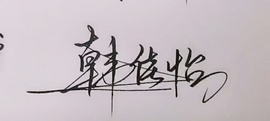 韩佳怡